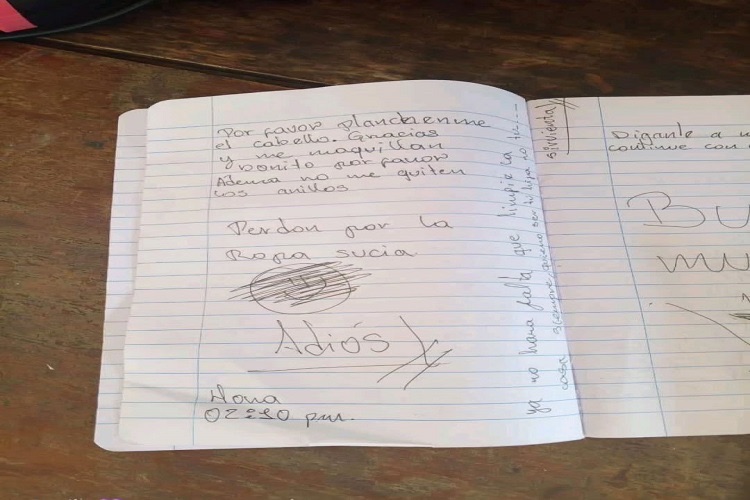 Por favor planchenme
el cabello. Gracias
y me maquillan
bonito por favor
Adema no me quiten
los anillos
Perdon por la
Ropa sucia.
Adiós
Hora
02:30 pm.
ya no hara falta que limpie la
casa siempre quiero ser tu hija no tu....
sirvienta
Diganle a
continue con
BU
MU